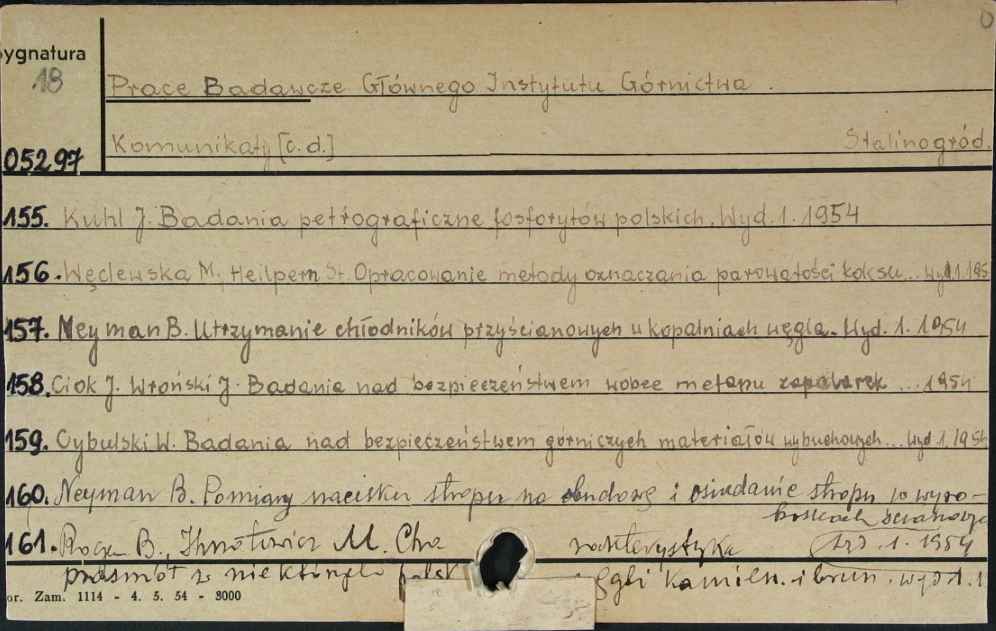 0
ygnatura
18
Prace Badawcze Głównego Instytutu Górnictwa.
Komunikaty [c.d.] Stalinogród.
05297
155. Kuhl J. Badania petrograficzne fosforytów polskich. Wyd. 1. 1954
156. Węclewska M. Heilpern St. Opracowanie metody oznaczania porowatości koksu... wyd 1. 195
157. Neyman B. Utrzymanie chłodników przyścianowych w kopalniach węgla. Wyd. 1. 1954
158. Ciok J. Wroński J. Badania nad bezpieczeństwem wobec metanu zapalarek... 1954
159. Cybulski W. Badania nad bezpieczeństwem górniczych materiałów wybuchowych... wyd 1, 1954
160. Neyman B. Pomiary nacisku stropu na obudowę i osiadanie stropu w wyro-
boskach
wyd. 1. 1954
161. Roga B., M. Cha rakterystyka
prasmół z niektórych polsk ęgli kamien. i brun. wyd. 1. 1
or. Zam. 1114 - 4. 5. 54 - 3000